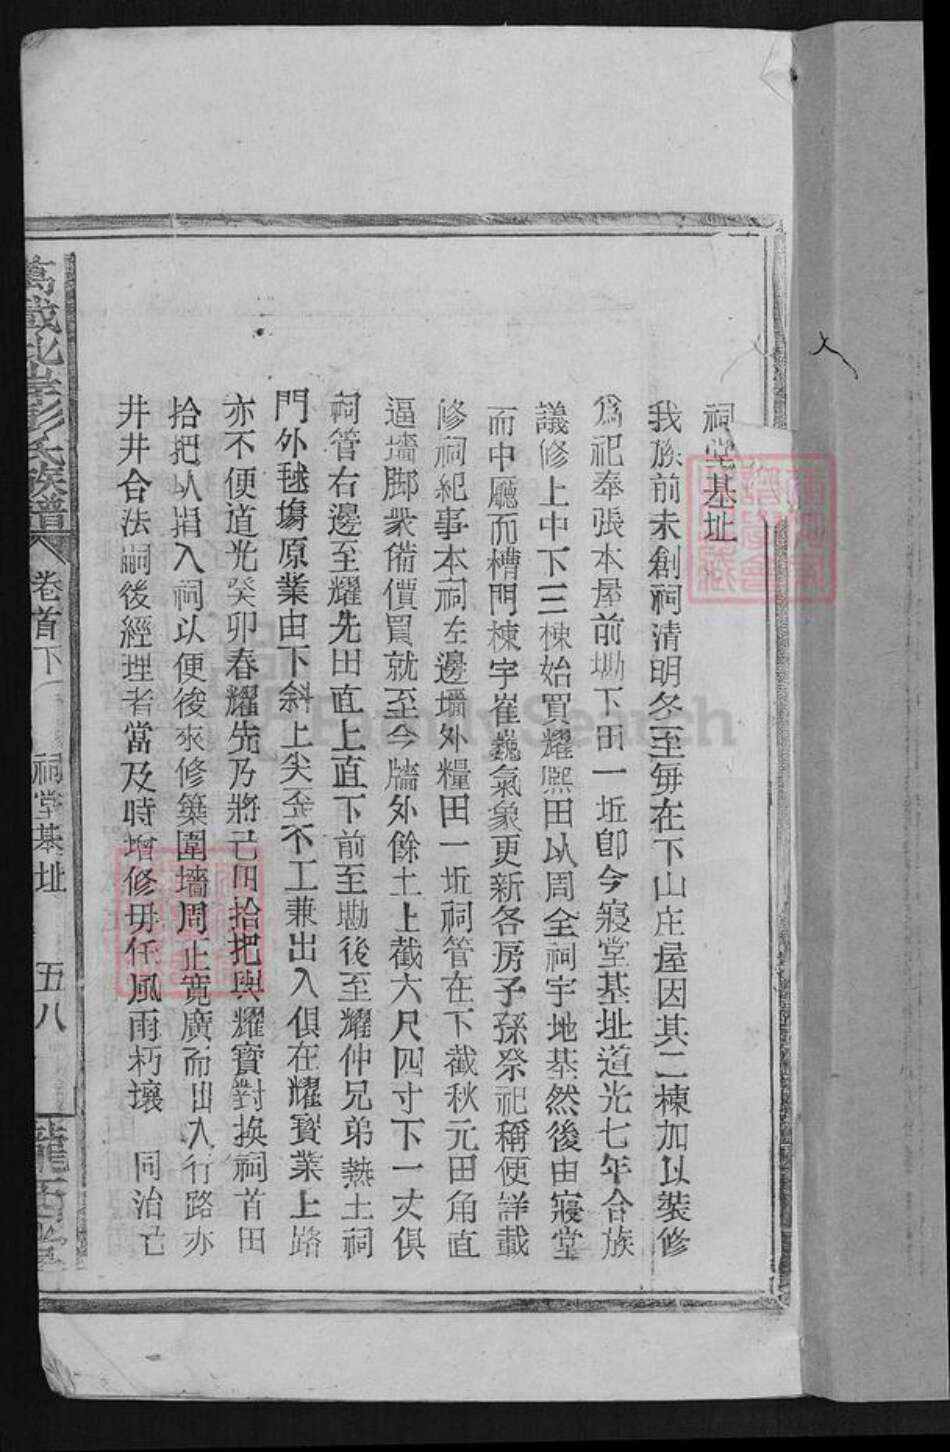 祠堂基址
我族前未創祠清明冬至每在下山庄屋因其二棟加以裝修
爲祀奉張本屋前墈下田一坵卽今寢堂基址道光七年合族
議修上中下三棟始買耀熙田以周全祠宇地基然後由寢堂
而中廳而槽門棟宇崔巍氣象更新各房子孫祭祀稱便詳載
修祠紀事本祠左邊墻外糧田一坵祠管在下截秋元田角直
逼墻脚衆備價買就至今牆外餘土上截六尺四寸下一丈俱
祠管右邊至耀先田直上直下前至墈後至耀仲兄弟熱土祠
門外毬塲原業由下斜上尖歪不工兼出入俱在耀寳業上路
亦不便道光癸卯春耀先乃將己田拾把與耀寳對換祠首田
拾把以捐入祠以便後來修築圍墻周正寛廣而出入行路亦
井井合法嗣後經理者當及時增修毋任風雨朽壞 同治己
萬載北岸彭氏族譜 卷首下 祠堂基址 五八
FamilySearch